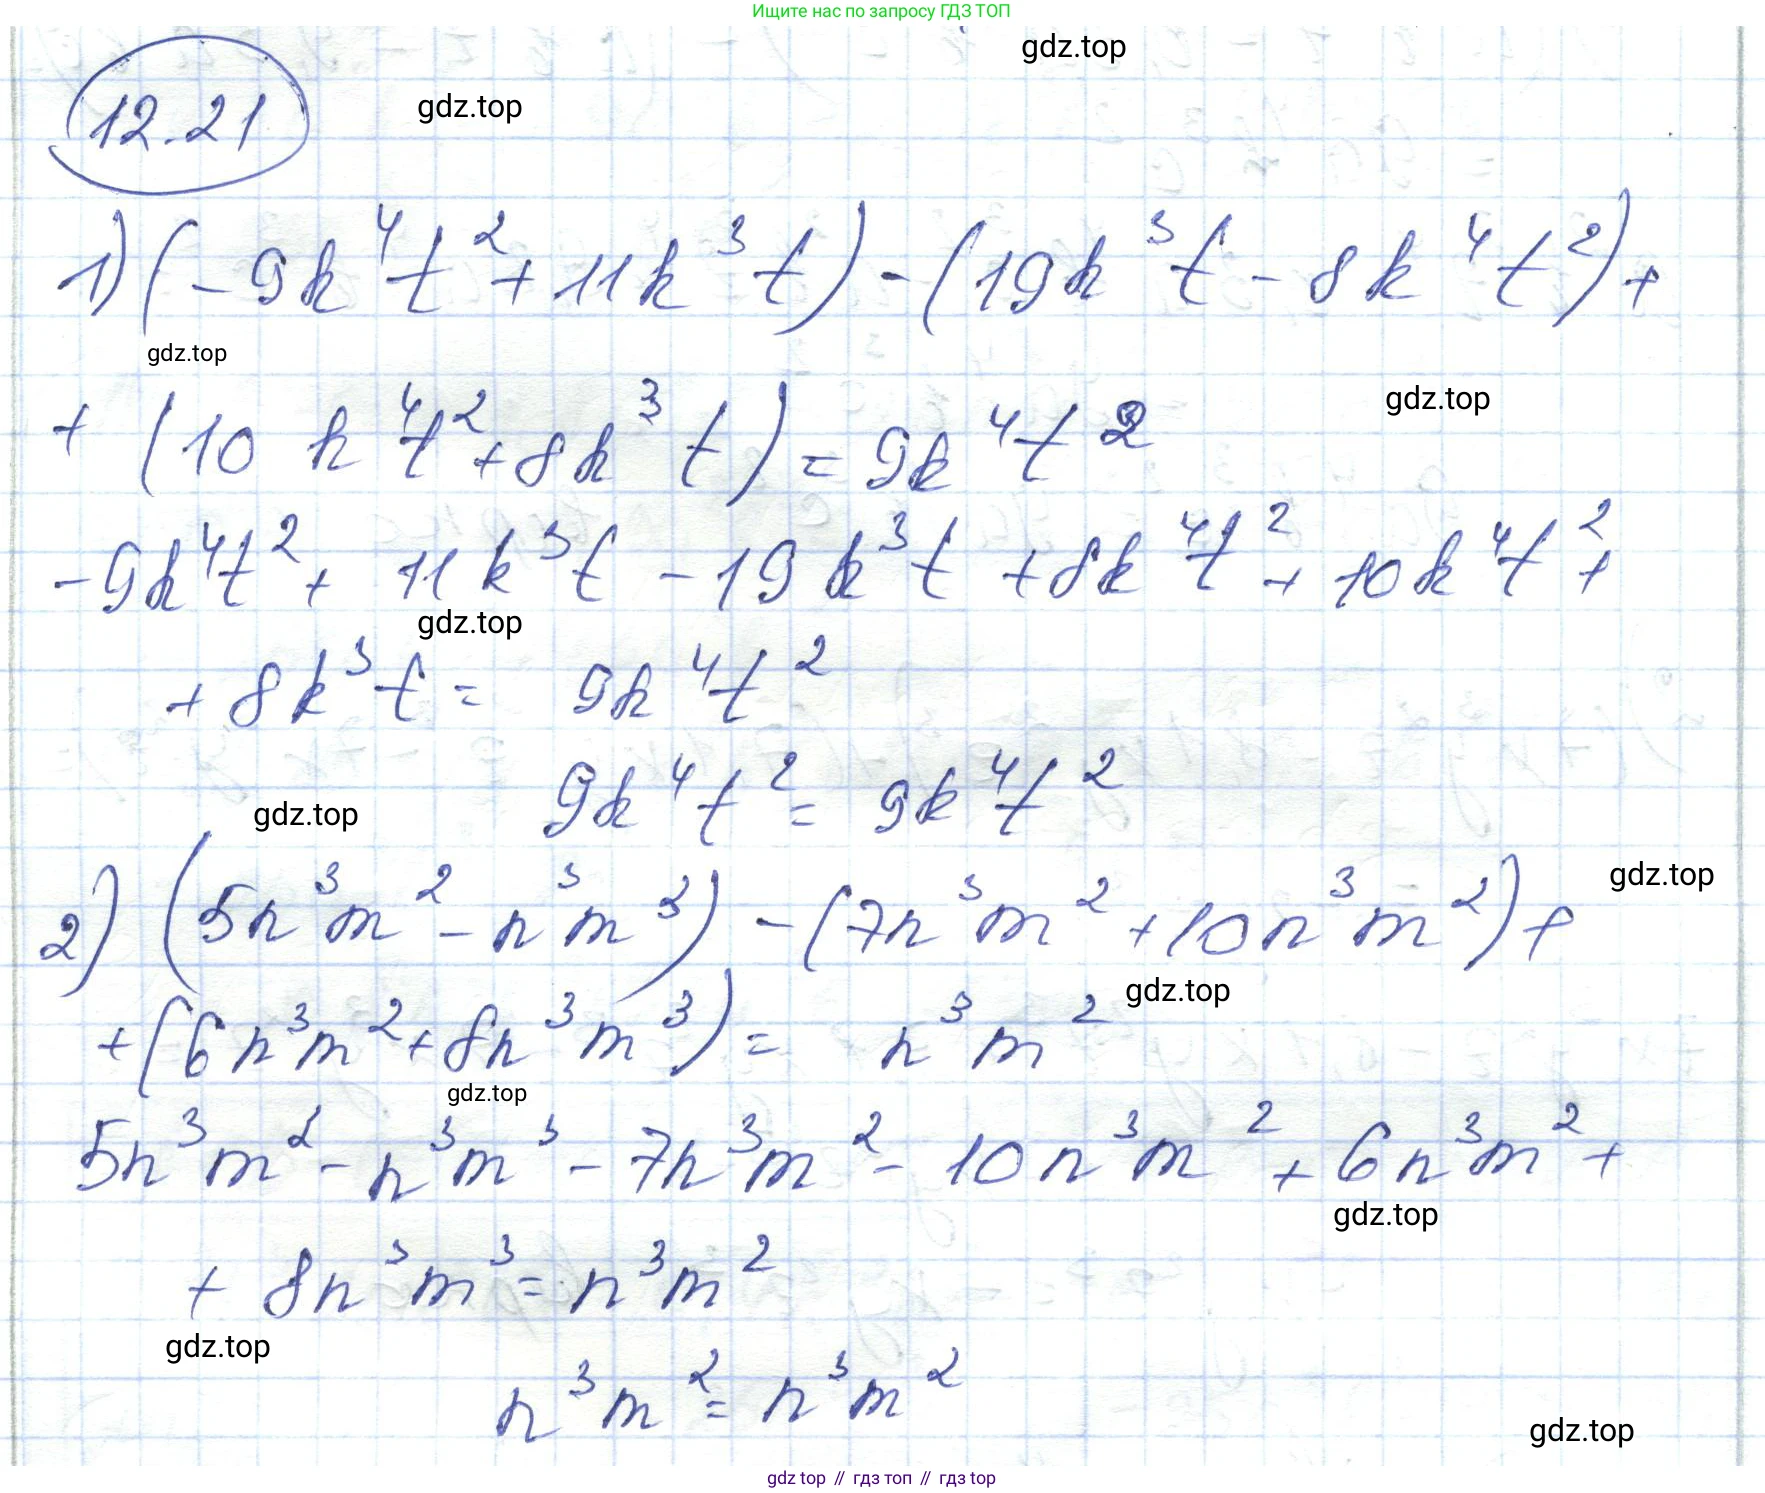 Ищите нас по запросу ГДЗ ТОП
gdz.top
12.21
gdz.top
1) (-9k⁴t² + 11k³t) - (19k³t - 8k⁴t²) +
gdz.top
+ (10k⁴t² + 8k³t) = 9k⁴t²
gdz.top
-9k⁴t² + 11k³t - 19k³t + 8k⁴t² + 10k⁴t² +
gdz.top
+ 8k³t = 9k⁴t²
9k⁴t² = 9k⁴t²
gdz.top
2) (5n³m² - n³m³) - (7n³m² + 10n³m²) +
gdz.top
gdz.top
+ (6n³m² + 8n³m³) = n³m²
gdz.top
5n³m² - n³m³ - 7n³m² - 10n³m² + 6n³m² +
gdz.top
+ 8n³m³ = n³m²
gdz.top
n³m² = n³m²
gdz.top
gdz top // гдз топ // гдз top